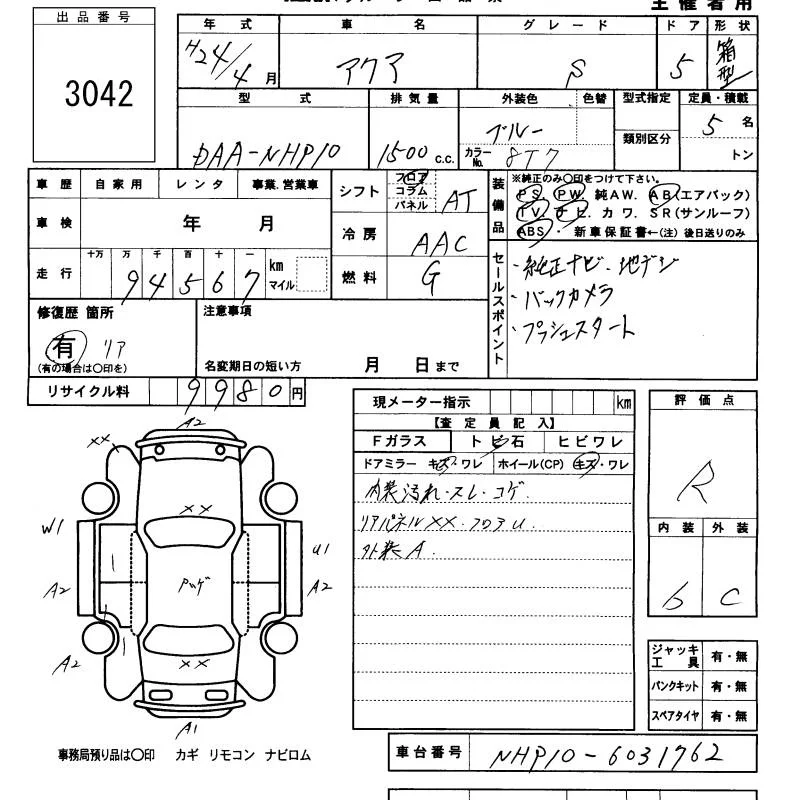 主催者用
出品番号
3042
年式 車名 グレード ドア 形状
H24/4月 アクア S 5 箱型
型式 排気量 外装色 色替 型式指定 定員・積載
DAA-NHP10 1500 c.c. ブルー カラーNo. 8T7 類別区分 5名 トン
車歴 自家用 レンタ 事業.営業車
シフト フロア コラム パネル AT
車検 年 月
冷房 AAC
走行 十万 万 千 百 十 一
94567 km マイル
燃料 G
装備品 ※純正のみ〇印をつけて下さい。
PS. PW. 純AW. AB(エアバック)
TV. ナビ. カワ. SR(サンルーフ)
ABS・ 新車保証書←(注) 後日送りのみ
セールスポイント
・純正ナビ.地デジ
・バックカメラ
・プッシュスタート
修復歴 箇所
有 リア
(有の場合は〇印を)
注意事項
名変期日の短い方 月 日まで
リサイクル料 9980円
現メーター指示 km
【査定員記入】
Fガラス トビ石 ヒビワレ
ドアミラー キズ・ワレ ホイール(CP) キズ・ワレ
内装汚れ・スレ・コゲ.
リアパネルXX.フロアU.
外装A.
評価点
R
内装 外装
6 C
ジャッキ工具 有・無
パンクキット 有・無
スペアタイヤ 有・無
A2
XX
XX
W1
U1
A2
A2
A2
XX
A1
事務局預り品は〇印 カギ リモコン ナビロム
車台番号 NHP10-6031762